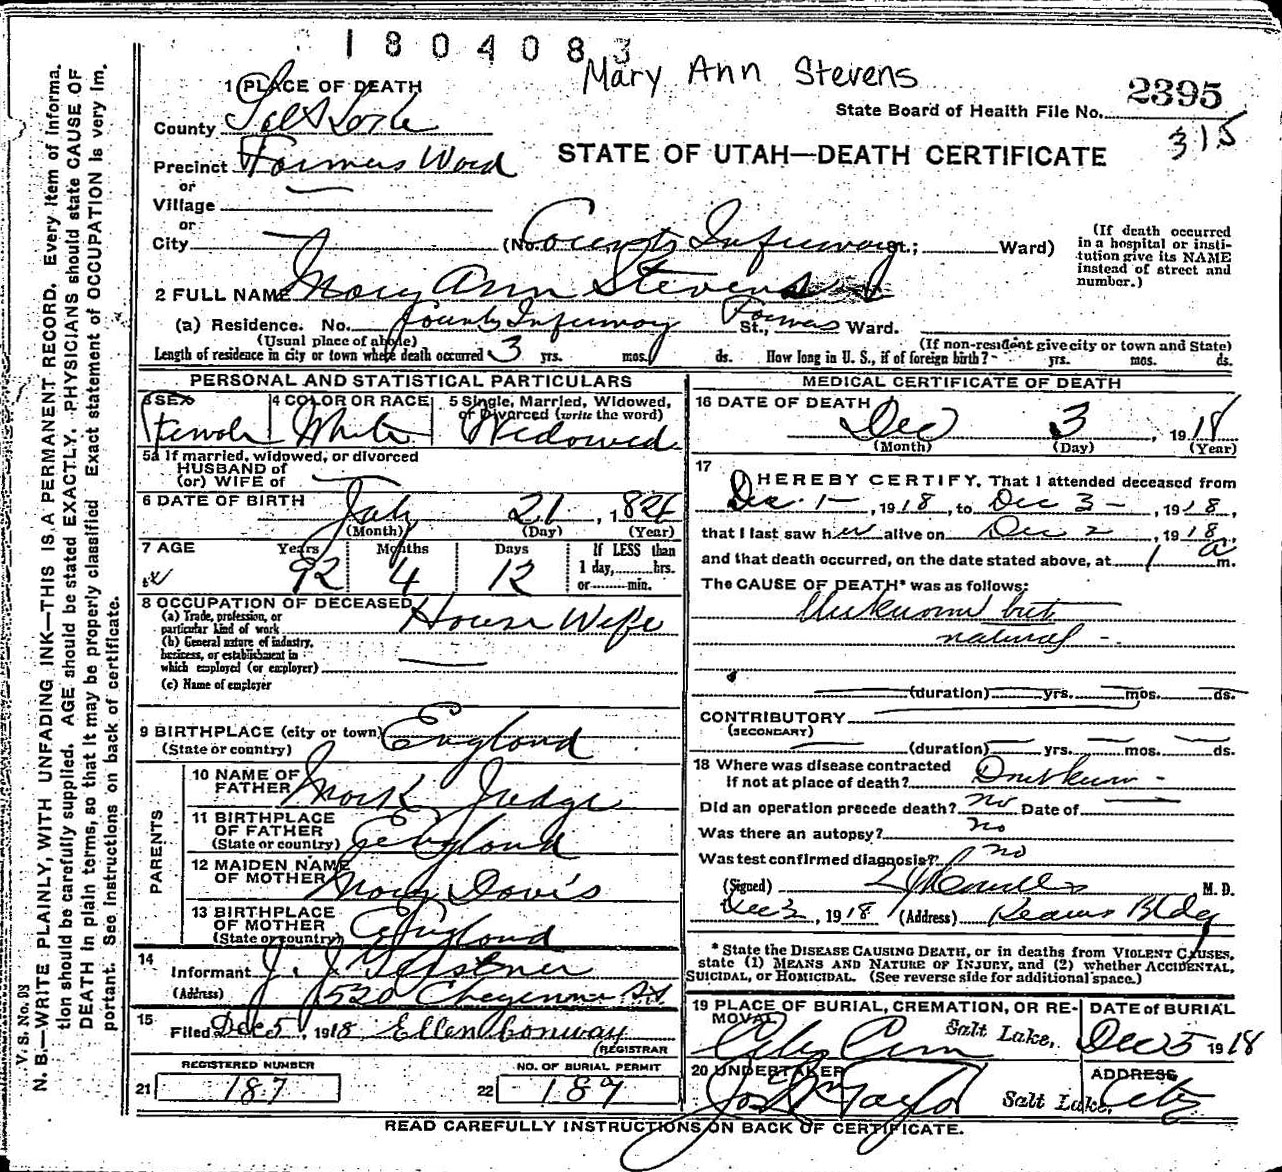 1804083
Mary Ann Stevens
1 PLACE OF DEATH
State Board of Health File No. 2395
315
County Salt Lake
Precinct Farmers Ward
STATE OF UTAH—DEATH CERTIFICATE
or
Village
or
City (No. County Infirmary St.; Ward)
(If death occurred in a hospital or insti-
tution give its NAME instead of street and
number.)
2 FULL NAME Mary Ann Stevens
(a) Residence. No. County Infirmary St., Farmers Ward.
(Usual place of abode) (If non-resident give city or town and State)
Length of residence in city or town where death occurred 3 yrs. mos. ds. How long in U. S., if of foreign birth? yrs. mos. ds.
PERSONAL AND STATISTICAL PARTICULARS
3 SEX 4 COLOR OR RACE 5 Single, Married, Widowed,
or Divorced (write the word)
Female White Widowed
5a If married, widowed, or divorced
HUSBAND of
(or) WIFE of
6 DATE OF BIRTH July 21, 1826
(Month) (Day) (Year)
7 AGE Years Months Days If LESS than
92 4 12 1 day, hrs.
or min.
8 OCCUPATION OF DECEASED House Wife
(a) Trade, profession, or
particular kind of work
(b) General nature of industry,
business, or establishment in
which employed (or employer)
(c) Name of employer
9 BIRTHPLACE (city or town) England
(State or country)
PARENTS
10 NAME OF
FATHER Mark Judge
11 BIRTHPLACE
OF FATHER
(State or country) England
12 MAIDEN NAME
OF MOTHER Mary Davis
13 BIRTHPLACE
OF MOTHER
(State or country) England
14
Informant J. J.
(Address) 1520 Cheyenne St.
15
Filed Dec 5, 1918 Ellen Conway
(REGISTRAR
REGISTERED NUMBER NO. OF BURIAL PERMIT
21 187 22 189
MEDICAL CERTIFICATE OF DEATH
16 DATE OF DEATH
Dec 3, 1918
(Month) (Day) (Year)
17
I HEREBY CERTIFY, That I attended deceased from
Dec 1-, 1918, to Dec 3-, 1918,
that I last saw her alive on Dec 2, 1918,
and that death occurred, on the date stated above, at 1 a m.
The CAUSE OF DEATH* was as follows:
Unknown but
natural -
(duration) yrs. mos. ds.
CONTRIBUTORY
(SECONDARY)
(duration) yrs. mos. ds.
18 Where was disease contracted
If not at place of death? Don't know -
Did an operation precede death? no Date of
Was there an autopsy? no
Was test confirmed diagnosis? no
(Signed) M. D.
Dec 3, 1918 (Address) Kearns Bldg
* State the DISEASE CAUSING DEATH, or in deaths from VIOLENT CAUSES,
state (1) MEANS AND NATURE OF INJURY, and (2) whether ACCIDENTAL,
SUICIDAL, or HOMICIDAL. (See reverse side for additional space.)
19 PLACE OF BURIAL, CREMATION, OR RE-
MOVAL
DATE of BURIAL
City Cem Salt Lake, Dec 5 1918
20 UNDERTAKER ADDRESS
Jos Wm Taylor Salt Lake, City
READ CAREFULLY INSTRUCTIONS ON BACK OF CERTIFICATE.
V. S. No.
N. B.—WRITE PLAINLY, WITH UNFADING INK—THIS IS A PERMANENT RECORD. Every item of informa-
tion should be carefully supplied. AGE should be stated EXACTLY. PHYSICIANS should state CAUSE OF
DEATH in plain terms, so that it may be properly classified. Exact statement of OCCUPATION is very im-
portant. See instructions on back of certificate.